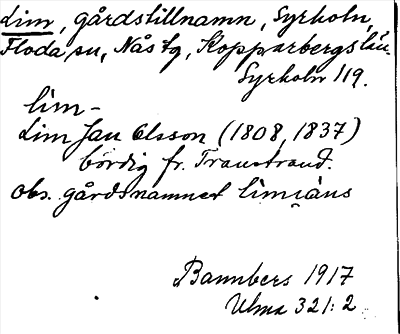 Lim, gårdstillnamn, Syrholn,
Floda sn, Nås tg, Kopparbergs län.
Syrholn 119.
lim-
Lim Jan Olsson (1808, 1837)
bördig fr. Transtrand.
Obs. gårdsnamnet limians
Bannbers 1917
Ulma 321:2